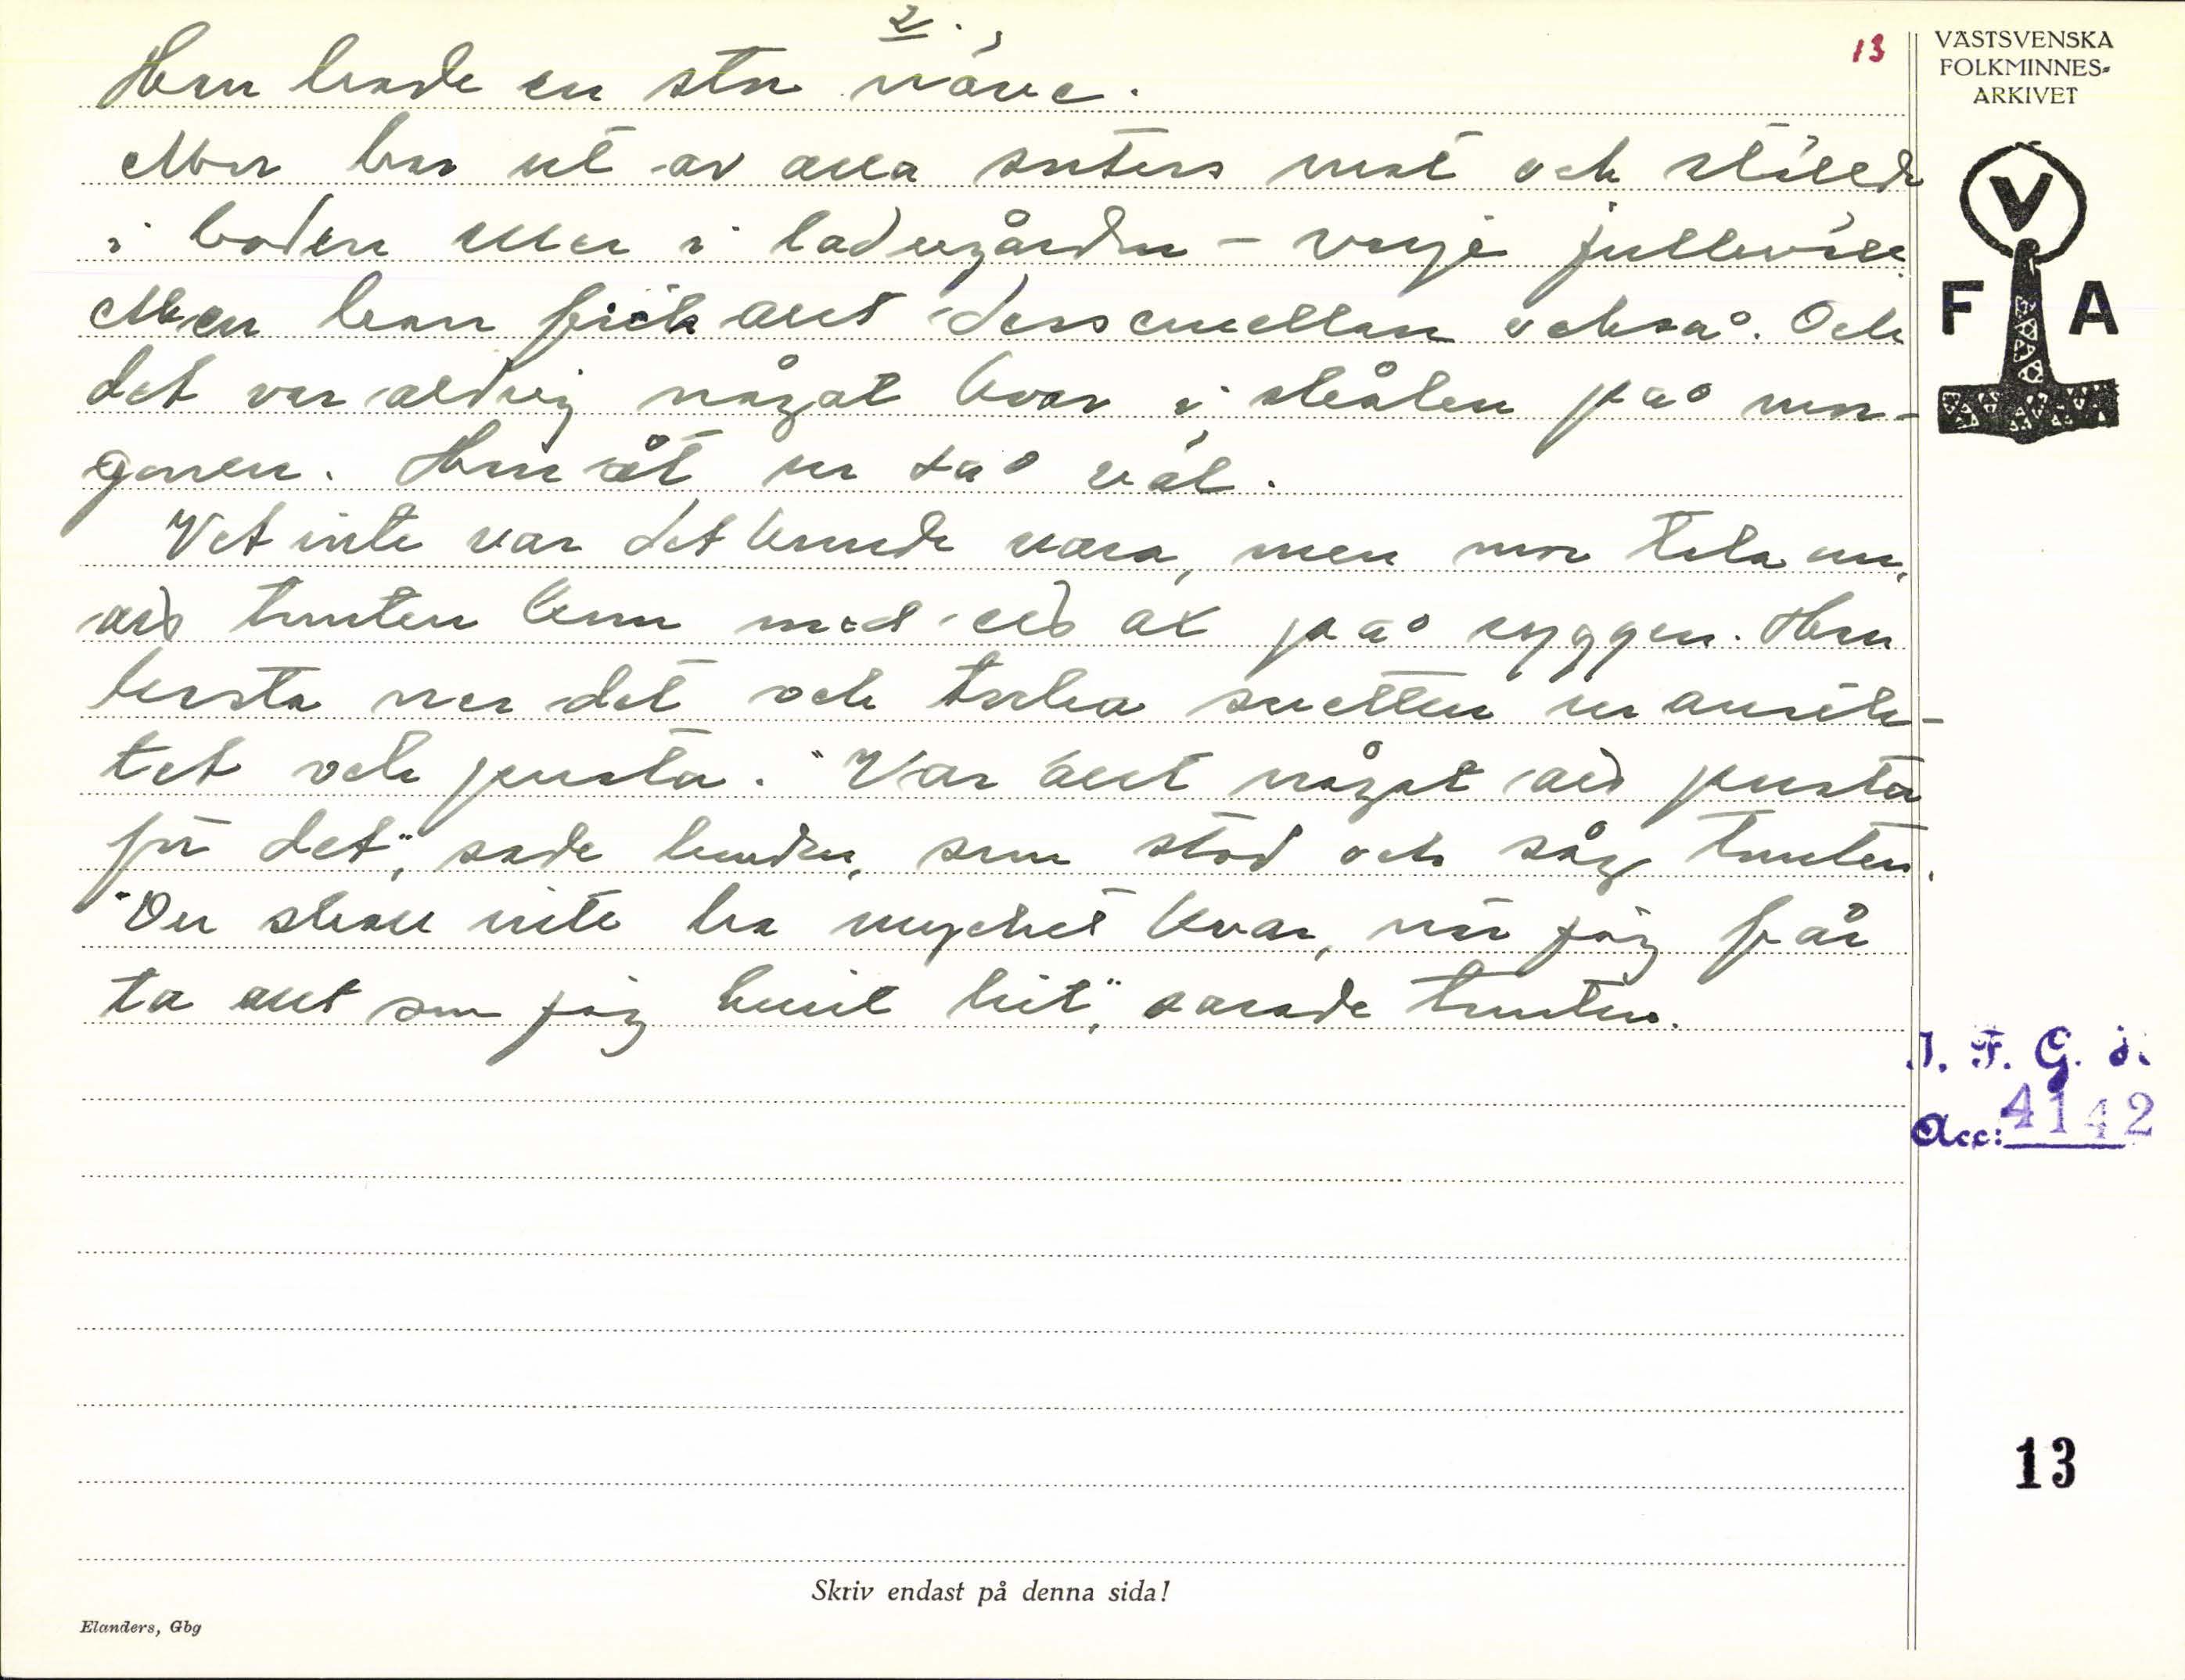 2.
13
Han hade en stor näve.
Mor bar ut av alla sorters mat och ställde
i boden eller i ladugården - varje julkväll.
Men han fick allt dessemellan också. Och
det var aldrig något kvar i skålen på mor-
gonen. Han åt ur så väl.
Vet inte var det kunde vara, men mor tala om,
att tomten kom med ett ax på ryggen. Han
kasta ner det och torka svetten ur ansik-
tet och pusta. "Var det något att pusta
för det", sade bonden, som stod och såg tomten.
"Du skall inte ha mycket kvar, när jag får
ta allt som jag burit hit", svarade tomten.
VÄSTSVENSKA
FOLKMINNES-
ARKIVET
V
F A
I. F. G. H.
Acc: 4142
13
Skriv endast på denna sida!
Elanders, Gbg